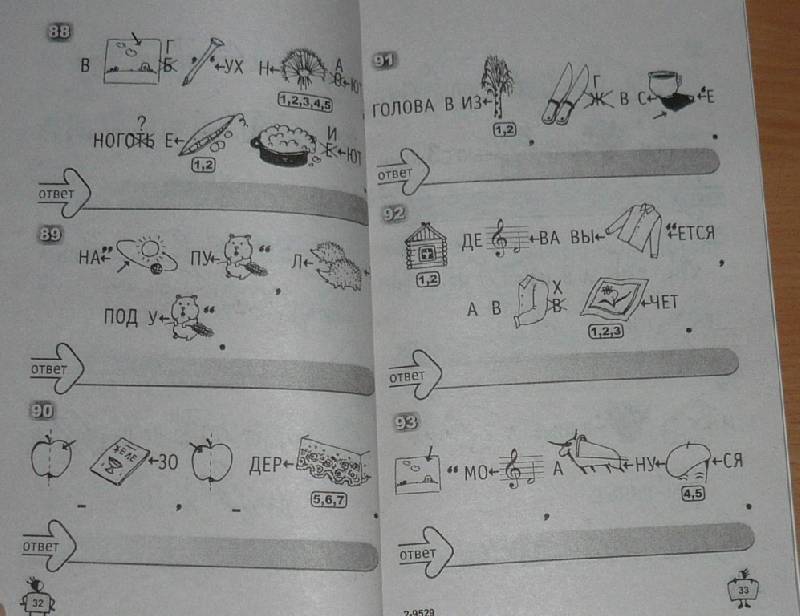 88
Г
В Б УХ Н А
В Ю
1,2,3,4,5
?
НОГОТЬ Е И
Е ЮТ
1,2
ответ
89
НА ПУ Л
ПОД У
ответ
90
ЖЕЛЕ
ЗО ДЕР
5,6,7
ответ
32
91
ГОЛОВА В ИЗ Г
Ж В С Е
1,2
ответ
92
ДЕ ВА ВЫ ЕТСЯ
1,2
А В Х
В ЧЕТ
1,2,3
ответ
93
МО А НУ СЯ
4,5
ответ
7-9529
33